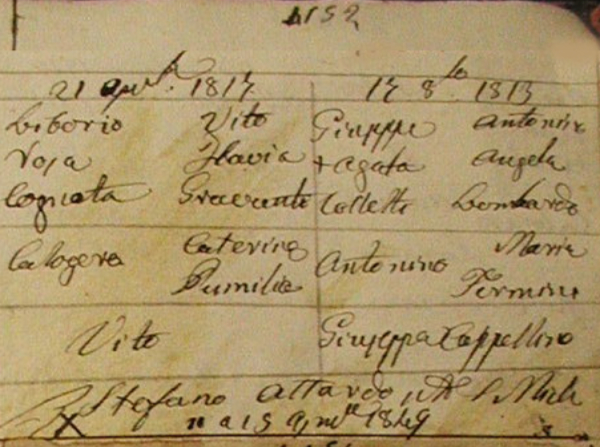 1152
21 April. 1817 17 8br 1813
Liborio Vito Giuseppe Antonino
Rosa Flavia + Agata Angela
Cognata Gravante Colletti Lombardo
Calogera Caterina Antonino Maria
Pumilia Termini
Vito Giuseppa Cappellino
Stefano Attardo
X n a 15 1849